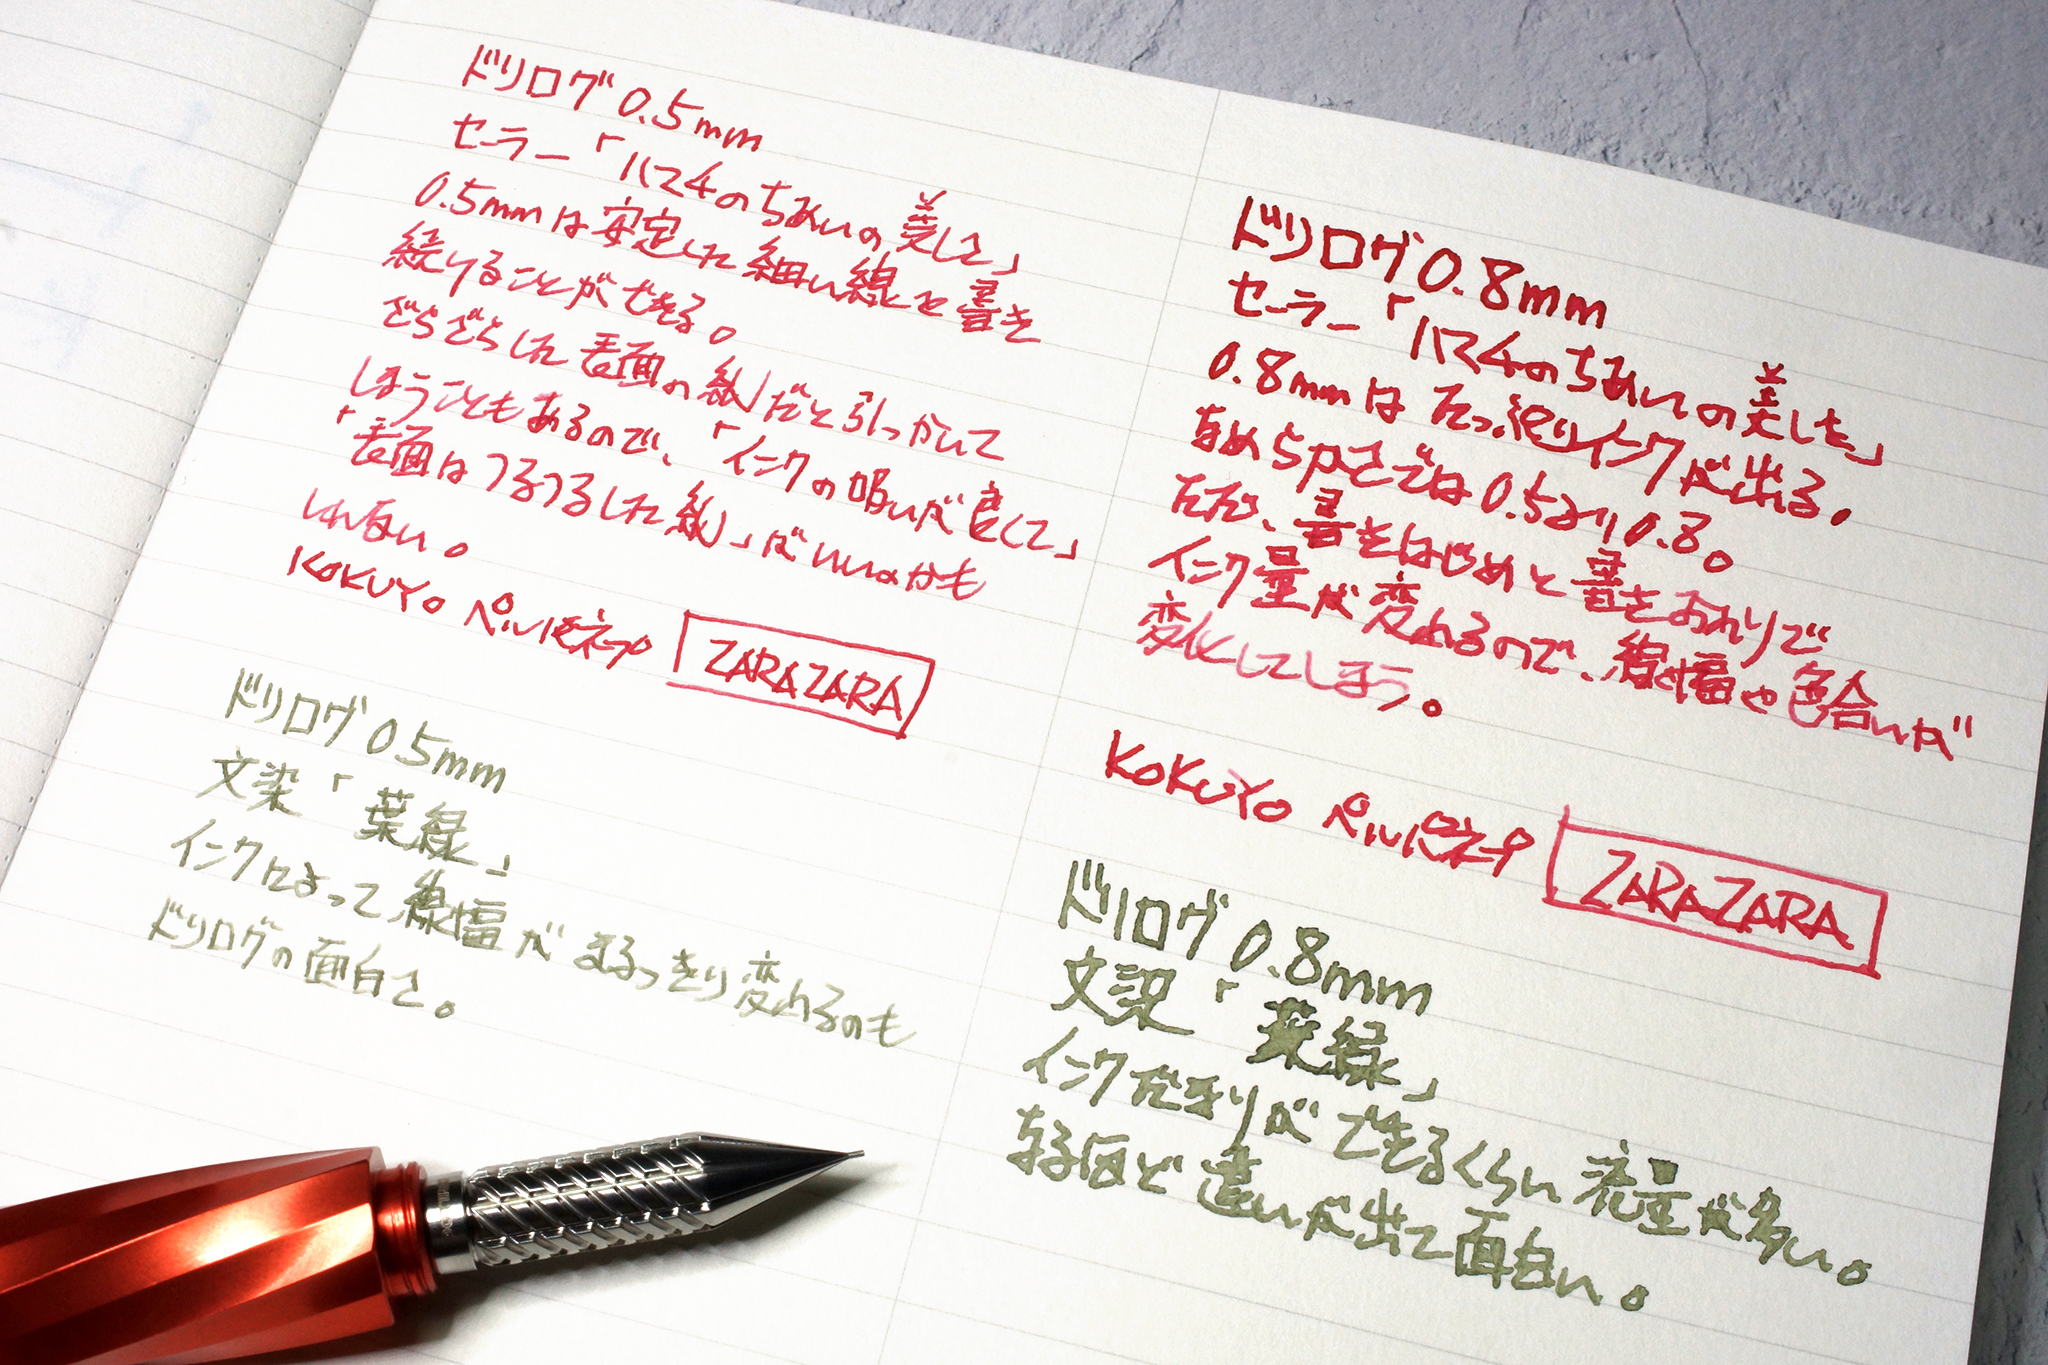 ドリログ 0.5mm
セーラー「ハマチのちあいの美しさ」
0.5mmは安定した細い線を書き
続けることができる。
ざらざらした表面の紙だと引っかいて
しまうこともあるので、「インクの吸いが良くて」
「表面はつるつるした紙」がいいのかも
しれない。
KOKUYO ペルパネップ ZARAZARA
ドリログ 0.5mm
文染「葉緑」
インクによって線幅がまるっきり変わるのも
ドリログの面白さ。
ドリログ 0.8mm
セーラー「ハマチのちあいの美しさ」
0.8mmはたっぷりインクが出る。
なめらかさでは0.5より0.8。
ただ、書きはじめと書きおわりで
インク量が変わるので、線幅や色合いが
変化してしまう。
KOKUYO ペルパネップ ZARAZARA
ドリログ 0.8mm
文染「葉緑」
インクだまりができるくらい流量が多い。
なるほど違いが出て面白い。